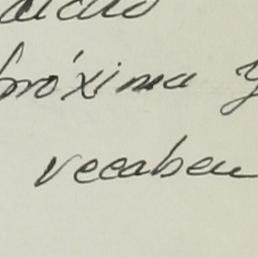 próxima y
recaben